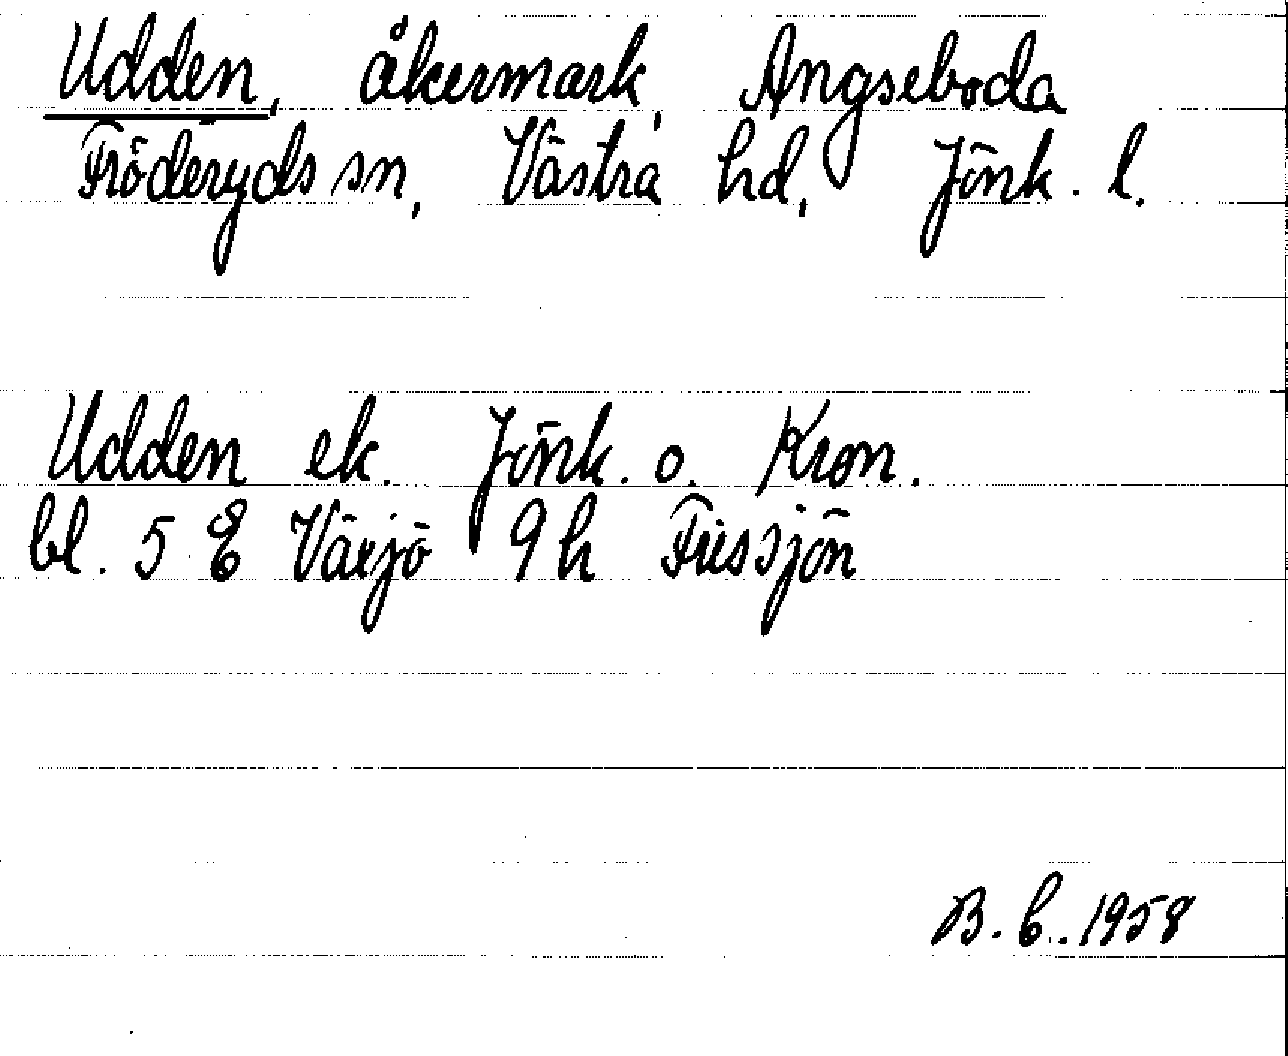 Udden, åkermark, Angseboda
Fröderyds sn, Västra hd, Jönk. l.
Udden ek. Jönk. o. Kron.
bl. 5 E Växjö 9h Fussjön
B. C. 1958